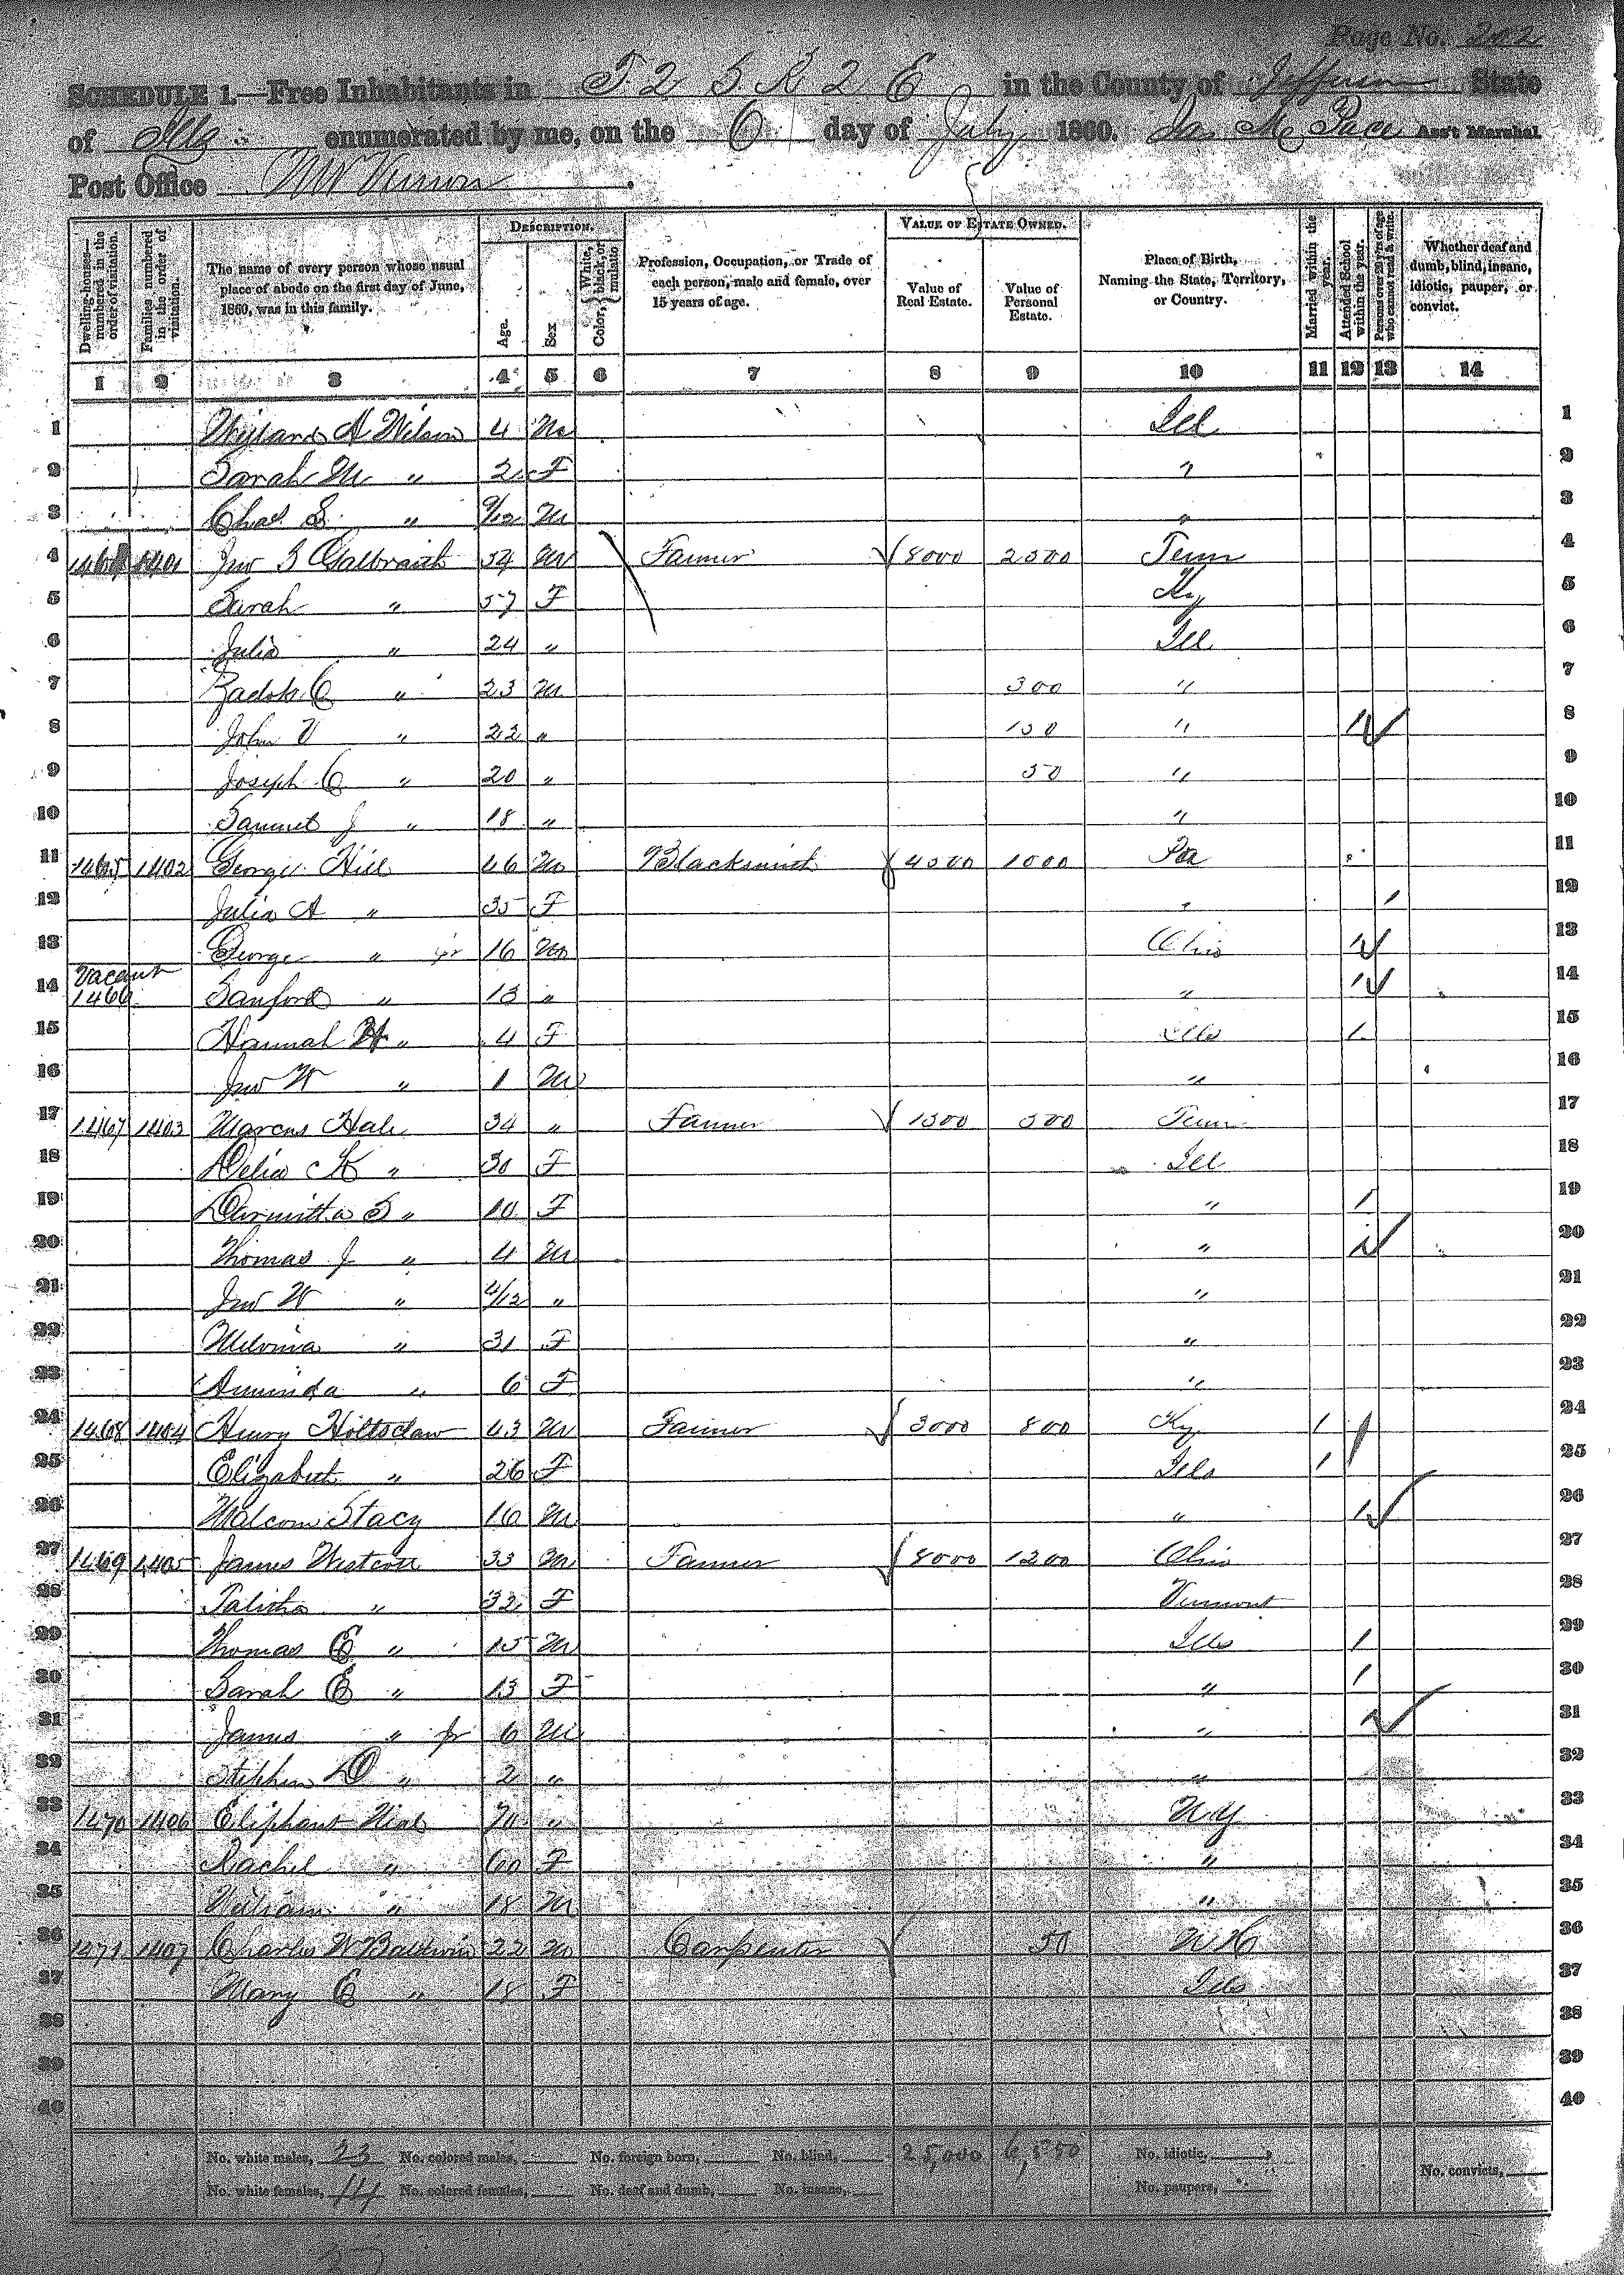 Page No. 202
SCHEDULE 1.—Free Inhabitants in T 2 S R 2 E in the County of Jefferson State
of Ills enumerated by me, on the 6 day of July 1860. Jas M Pace Ass't Marshal
Post Office Mt Vernon.
Dwelling-houses—numbered in the order of visitation. Families numbered in the order of visitation. The name of every person whose usual place of abode on the first day of June, 1860, was in this family. DESCRIPTION. Age. Sex Color, { White, black, or mulatto Profession, Occupation, or Trade of each person, male and female, over 15 years of age. VALUE OF ESTATE OWNED. Value of Real Estate. Value of Personal Estate. Place of Birth, Naming the State, Territory, or Country. Married within the year. Attended School within the year. Persons over 20 y'rs of age who cannot read & write. Whether deaf and dumb, blind, insane, idiotic, pauper, or convict.
1 2 3 4 5 6 7 8 9 10 11 12 13 14
1 A Wilson 4 M Ill 1
2 Sarah M " 2 F " 2
3 Chas S " 9/12 M " 3
4 1401 Jno S Galbraith 54 M Farmer 8000 2500 Tenn 4
5 Sarah " 57 F Ky 5
6 Julia " 24 " Ill 6
7 Zadok C " 23 M 300 " 7
8 John V " 22 " 150 " 1 8
9 Joseph C " 20 " 50 " 9
10 Samuel J " 18 " " 10
11 1465 1402 George Hill 46 M Blacksmith 4500 1000 Pa 11
12 Julia A " 35 F " 1 12
13 George " jr 16 M Ohio 1 13
Vacant
14 1466 Sanford " 13 " " 1 14
15 Hannah " 4 F Ills 1 15
16 Jno W " 1 M " 16
17 1467 1403 Marcus Hale 34 " Farmer 1500 500 Tenn 17
18 Delia K " 30 F Ill 18
19 S " 10 F " 1 19
20 Thomas J " 4 M " 1 20
21 Jno W " 4/12 " " 21
22 Melvina " 31 F " 22
23 " 6 F " 23
24 1468 1404 Henry Holtsclaw 43 M Farmer 3000 800 Ky 1 24
25 Elizabeth " 26 F Ills 1 25
26 Malcom Stacy 10 M " 1 26
27 1469 1405 James Westcott 33 M Farmer 8000 1200 Ohio 27
28 Talitha " 32 F Vermont 28
29 Thomas E " 15 M Ills 1 29
30 Sarah E " 13 F " 1 30
31 James " jr 6 M " 1 31
32 Stephen D " 2 " " 32
33 1470 1406 Eliphant Neal 70 " N Y 33
34 Rachel " 60 F " 34
35 William " 18 M " 35
36 1471 1407 Charles W Baldwin 22 M Carpenter 50 36
37 Mary E " 18 F Ills 37
38 38
39 39
40 40
No. white males, 23 No. colored males, No. foreign born, No. blind, 25,000 6,550 No. idiotic, No. convicts,
No. white females, 14 No. colored females, No. deaf and dumb, No. insane, No. paupers,
37